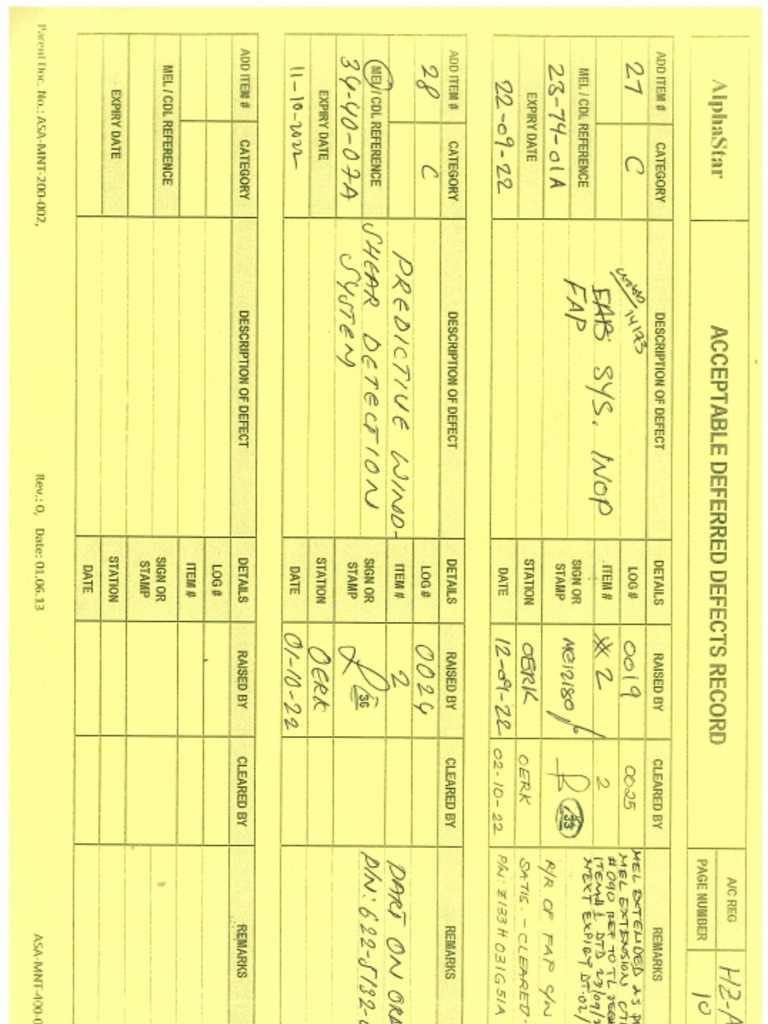 AlphaStar
ACCEPTABLE DEFERRED DEFECTS RECORD
A/C REG
HZ-A
PAGE NUMBER
10
ADD ITEM # CATEGORY DESCRIPTION OF DEFECT DETAILS RAISED BY CLEARED BY REMARKS
27 C
MEL / CDL REFERENCE
23-74-01A
EXPIRY DATE
22-09-22
FAP SYS. INOP
FAP
LOG # 0019 0025
ITEM # 2 2
SIGN OR STAMP
STATION OERK OERK
DATE 12-09-22 02-10-22
MEL EXTENDED AS
MEL EXTENSION
#090 REF TO TL
ITEM# 1 DTD 23/09/
NEXT EXPIRY DT. 02/
R/R OF FAP
SATIS. - CLEARED.
P/N: Z133H031G51A
ADD ITEM # CATEGORY DESCRIPTION OF DEFECT DETAILS RAISED BY CLEARED BY REMARKS
28 C
MEL / CDL REFERENCE
34-40-07A
EXPIRY DATE
11-10-2022
PREDICTIVE WIND-
SHEAR DETECTION
SYSTEM
LOG # 0024
ITEM # 2
SIGN OR STAMP 36
STATION OERK
DATE 01-10-22
PART ON ORD
P/N: 622-5132-
ADD ITEM # CATEGORY DESCRIPTION OF DEFECT DETAILS RAISED BY CLEARED BY REMARKS
MEL / CDL REFERENCE
EXPIRY DATE
LOG #
ITEM #
SIGN OR STAMP
STATION
DATE
Parent Doc. No.: ASA-MNT-200-002, Rev.: 0, Date: 01.06.13 ASA-MNT-400-0